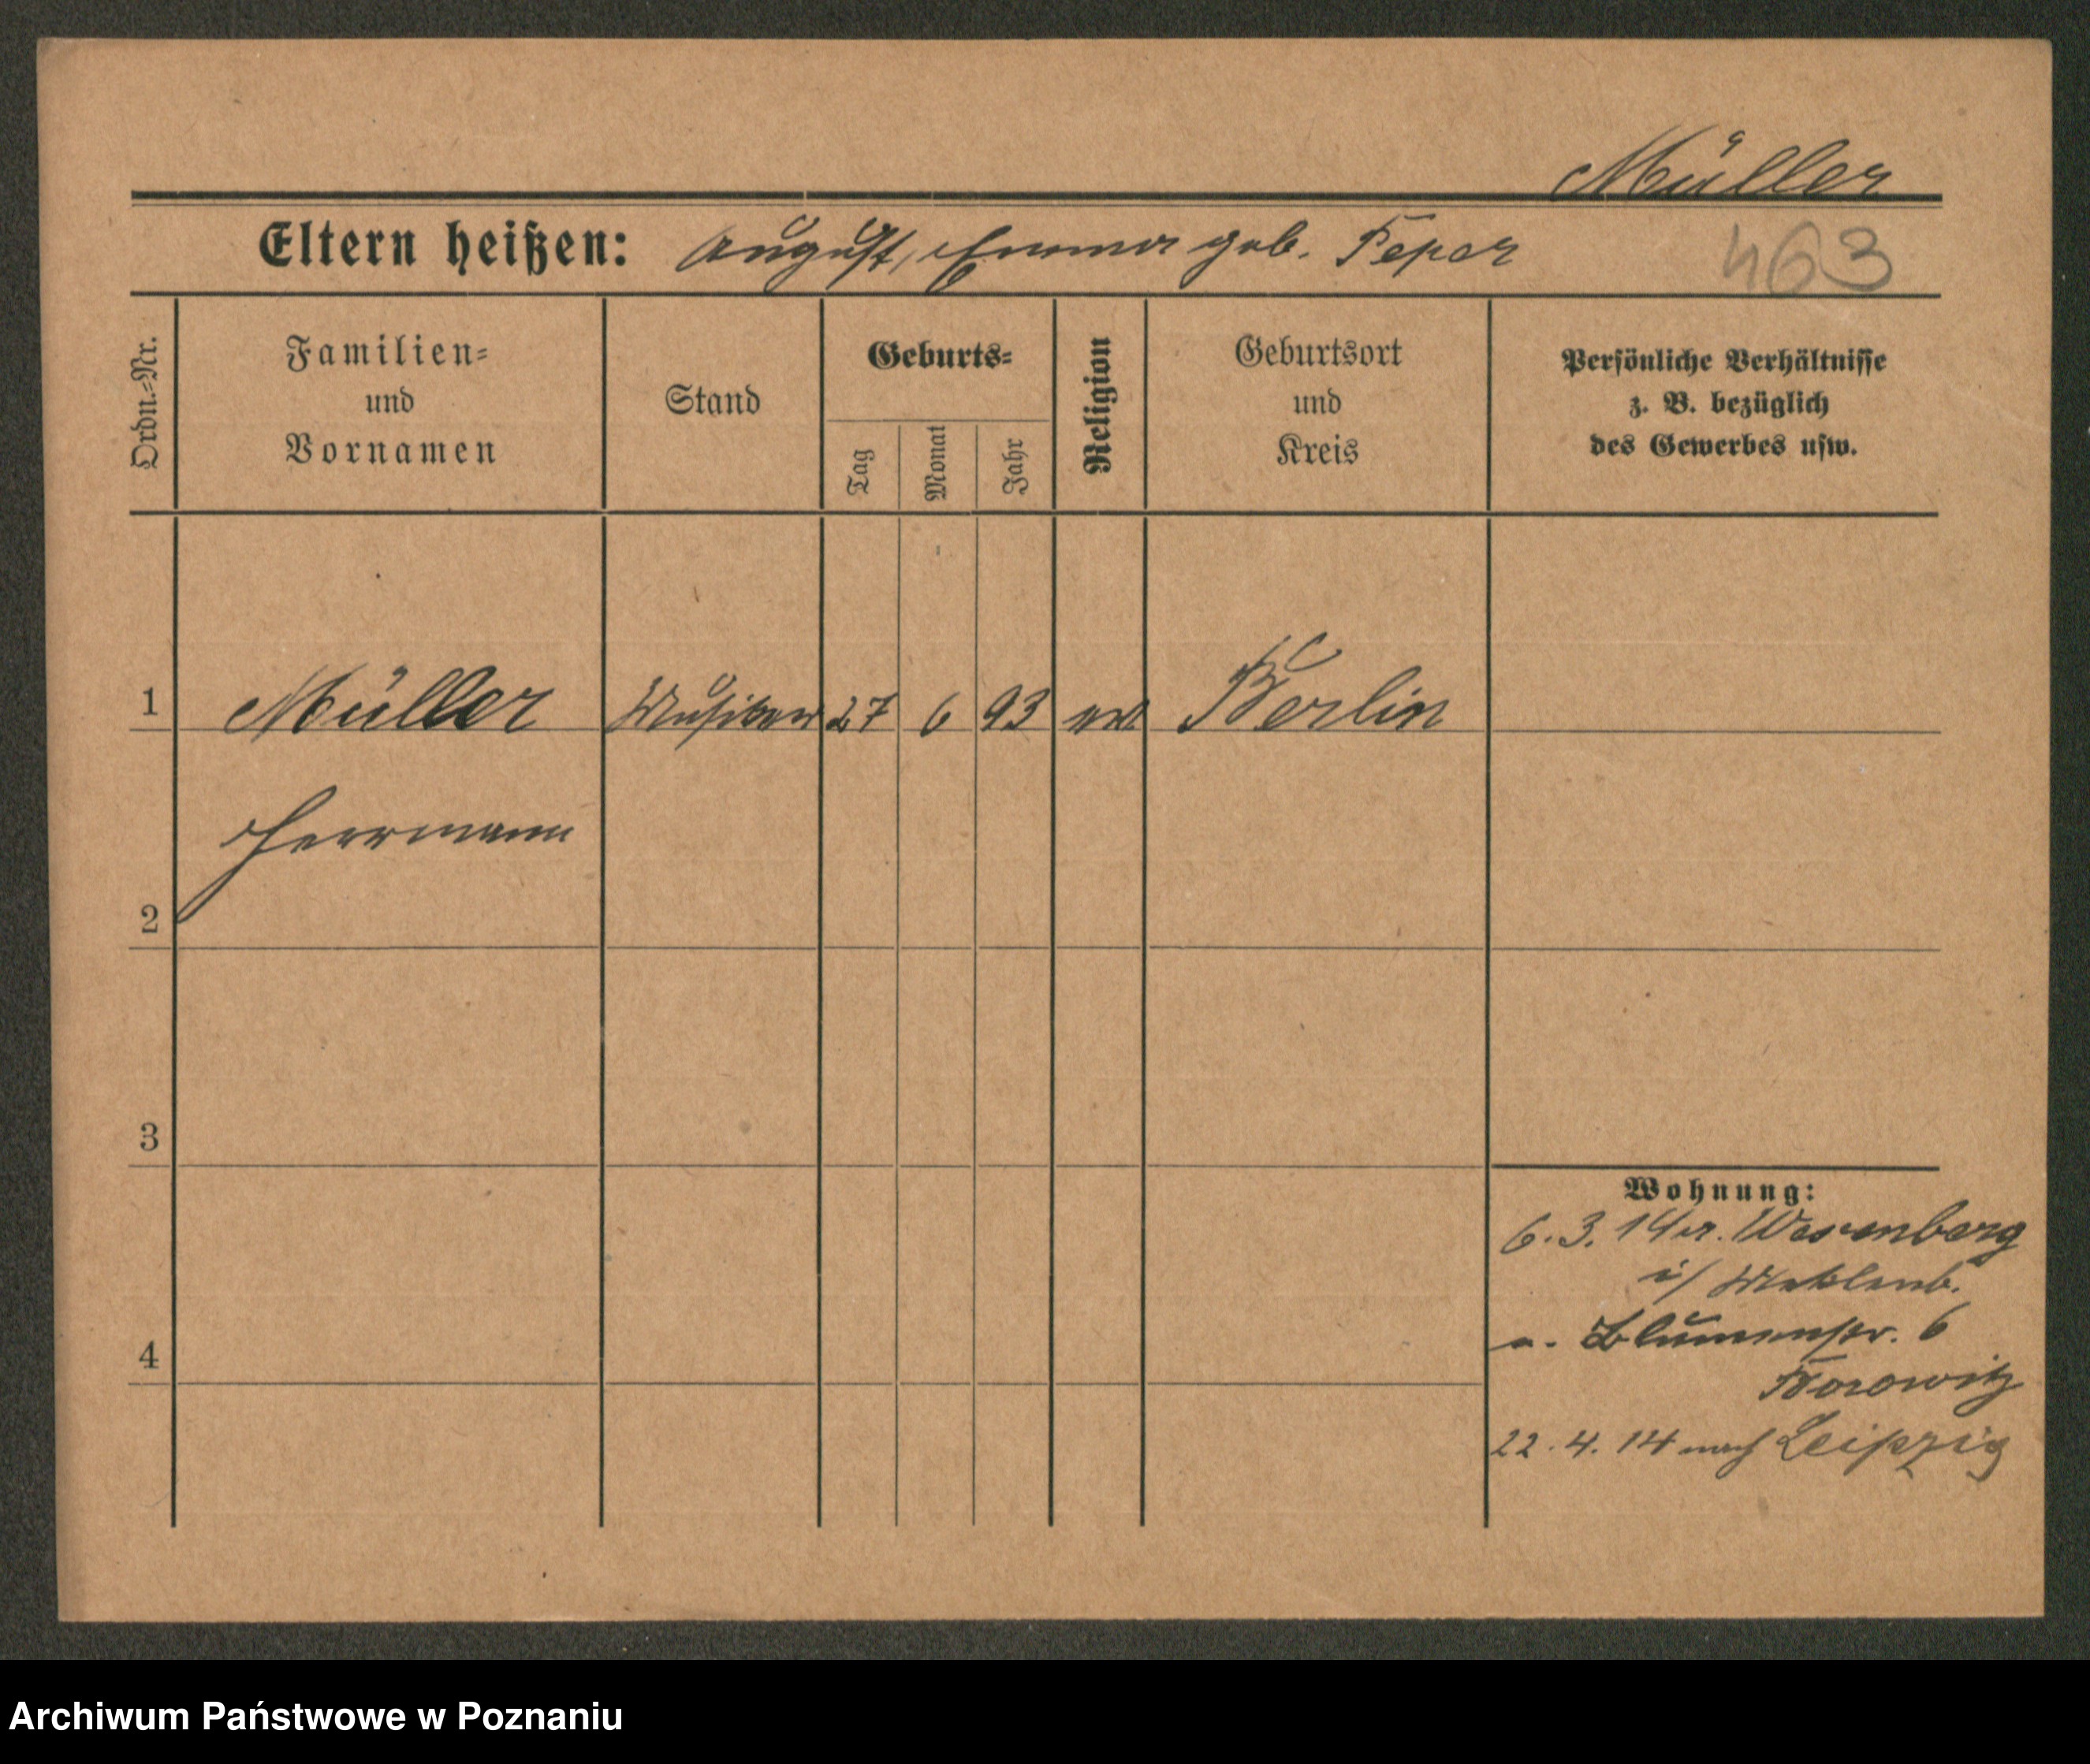 Müller
Eltern heißen: August, Emma geb. Peper
463
Ordn.-Nr.
Familien-
und
Vornamen
Stand
Geburts-
Tag
Monat
Jahr
Religion
Geburtsort
und
Kreis
Persönliche Verhältnisse
z. B. bezüglich
des Gewerbes usw.
1 Müller Musiker 27 6 93 ev. Berlin
Herrmann
2
3
Wohnung:
6. 3. 14 Wesenberg
i/ Meklenb.
Blumenstr. 6
4
Borowitz
22. 4. 14 nach Leipzig
Archiwum Państwowe w Poznaniu